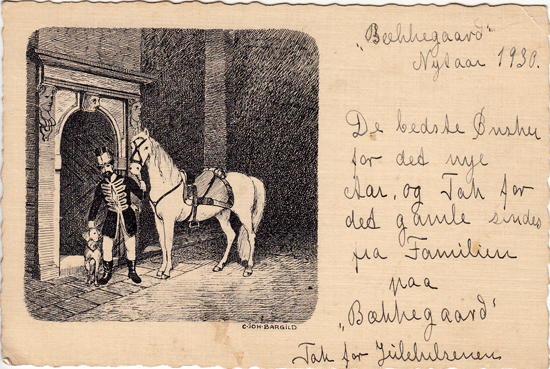 „Bækkegaard"
Nytaar 1930.
De bedste Ønsker
for det nye
Aar, og Tak for
det gamle sendes
fra Familien
paa
„Bækkegaard"
Tak for Julehilsenen
C·JOH·BARGILD